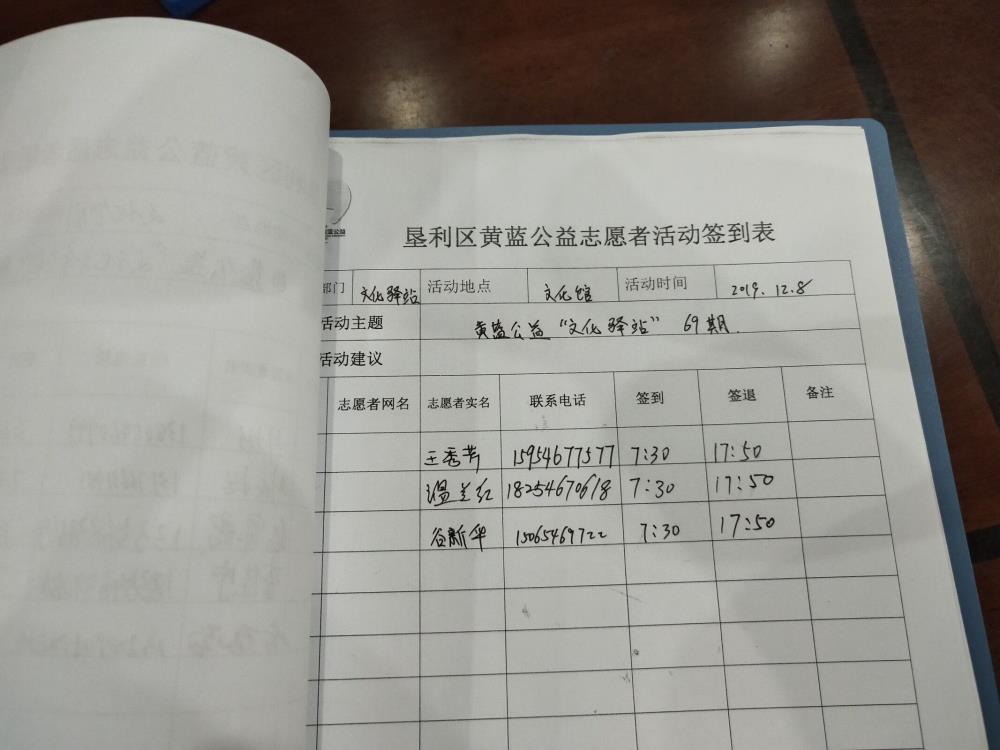 垦利区黄蓝公益志愿者活动签到表
部门 文化驿站 活动地点 文化馆 活动时间 2019.12.8
活动主题 黄蓝公益“文化驿站” 69期
活动建议
志愿者网名 志愿者实名 联系电话 签到 签退 备注
王秀芳 15954677577 7:30 17:50
温兰红 18254670618 7:30 17:50
谷新华 15065469722 7:30 17:50